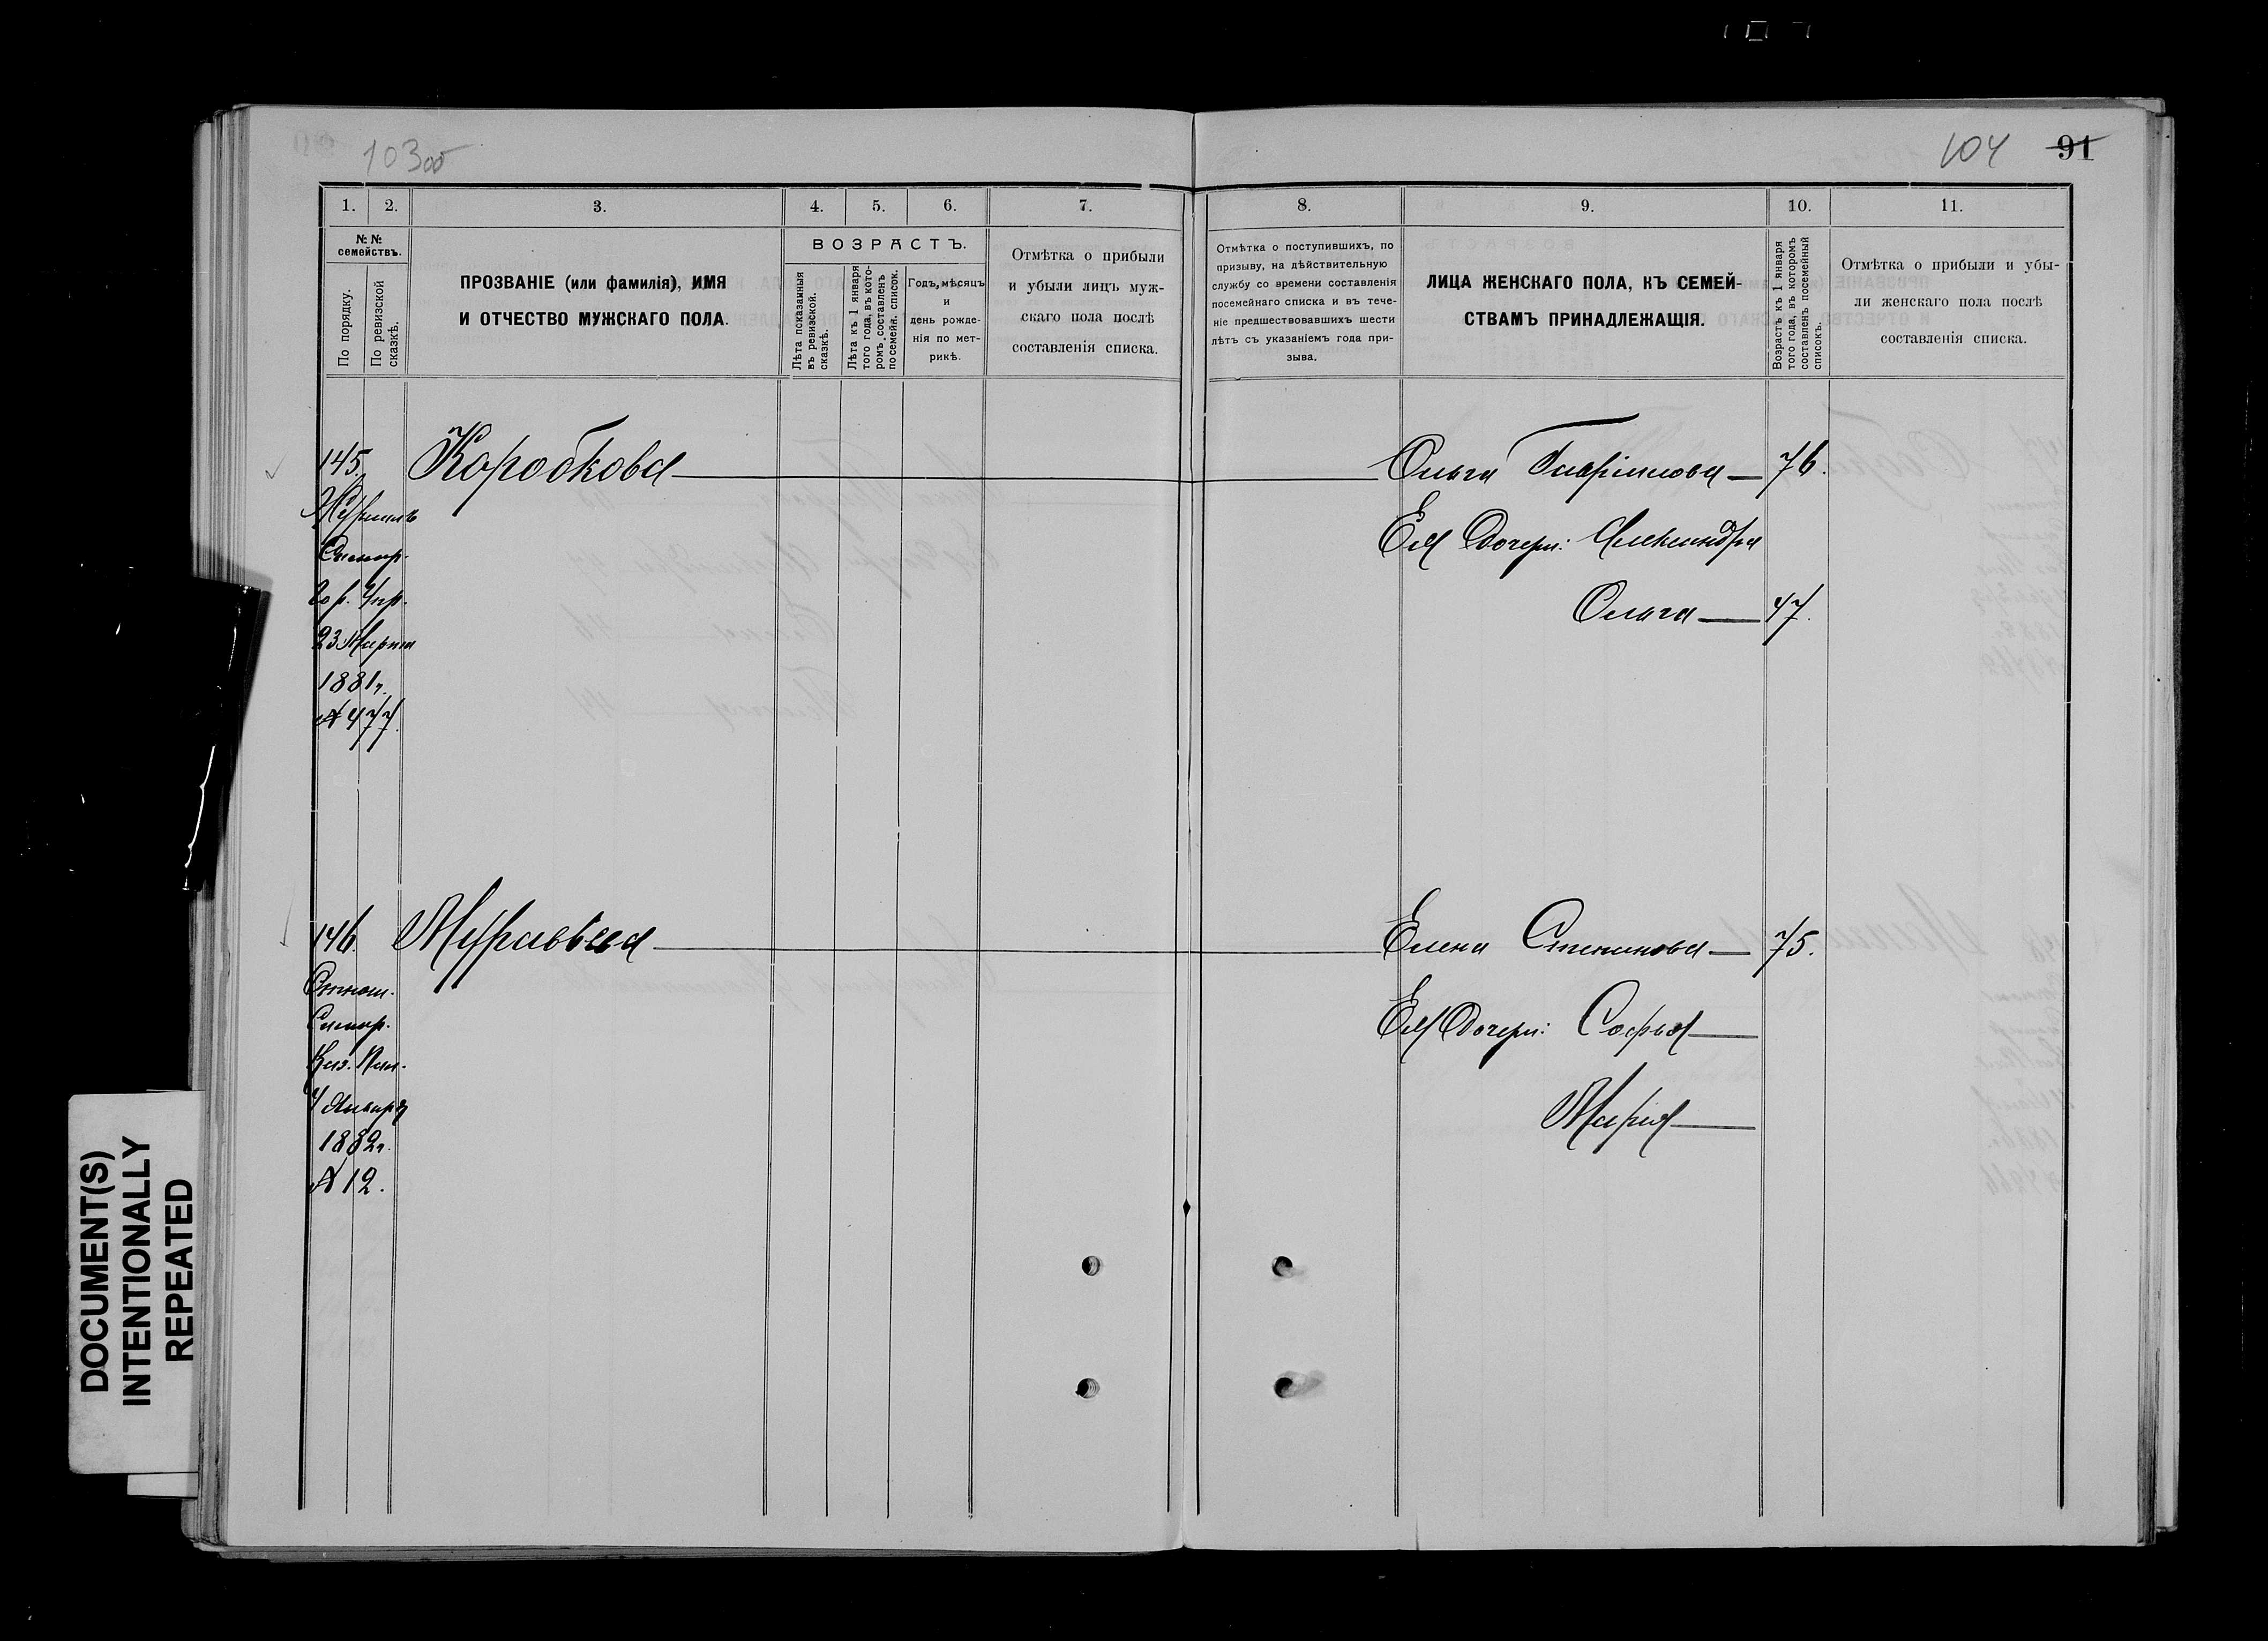 103об
104 91
1. 2. 3. 4. 5. 6. 7. 8. 9. 10. 11.
№№ семействъ.
По порядку.
По ревизской сказкѣ.
ПРОЗВАНІЕ (или фамилія), ИМЯ
И ОТЧЕСТВО МУЖСКАГО ПОЛА.
ВОЗРАСТЪ.
Лѣта показанныя въ ревизской сказкѣ.
Лѣта къ 1 января того года, въ которомъ составленъ посемейн. список.
Годъ, мѣсяцъ
и
день рожде-
нія по мет-
рикѣ.
Отмѣтка о прибыли
и убыли лицъ муж-
скаго пола послѣ
составленія списка.
Отмѣтка о поступившихъ, по
призыву, на дѣйствительную
службу со времени составленія
посемейнаго списка и въ тече-
ніе предшествовавшихъ шести
лѣтъ съ указаніемъ года при-
зыва.
ЛИЦА ЖЕНСКАГО ПОЛА, КЪ СЕМЕЙ-
СТВАМЪ ПРИНАДЛЕЖАЩІЯ.
Возрастъ къ 1 января
того года, въ которомъ
составленъ посемейный
списокъ.
Отмѣтка о прибыли и убы-
ли женскаго пола послѣ
составленія списка.
145. Коробкова Ольга Гавриилова 76.
Журналъ
Симпр.
Гор. Упр.
23 Марта
1881г.
№ 477.
Ея Дочери: Александра
Ольга 47.
146. Муравьева Елена Степанова 75.
Отнош.
Симпр.
Каз. Пал.
4 Января
1882г.
№ 12.
Ея Дочери: Софья
Марія
DOCUMENT(S)
INTENTIONALLY
REPEATED